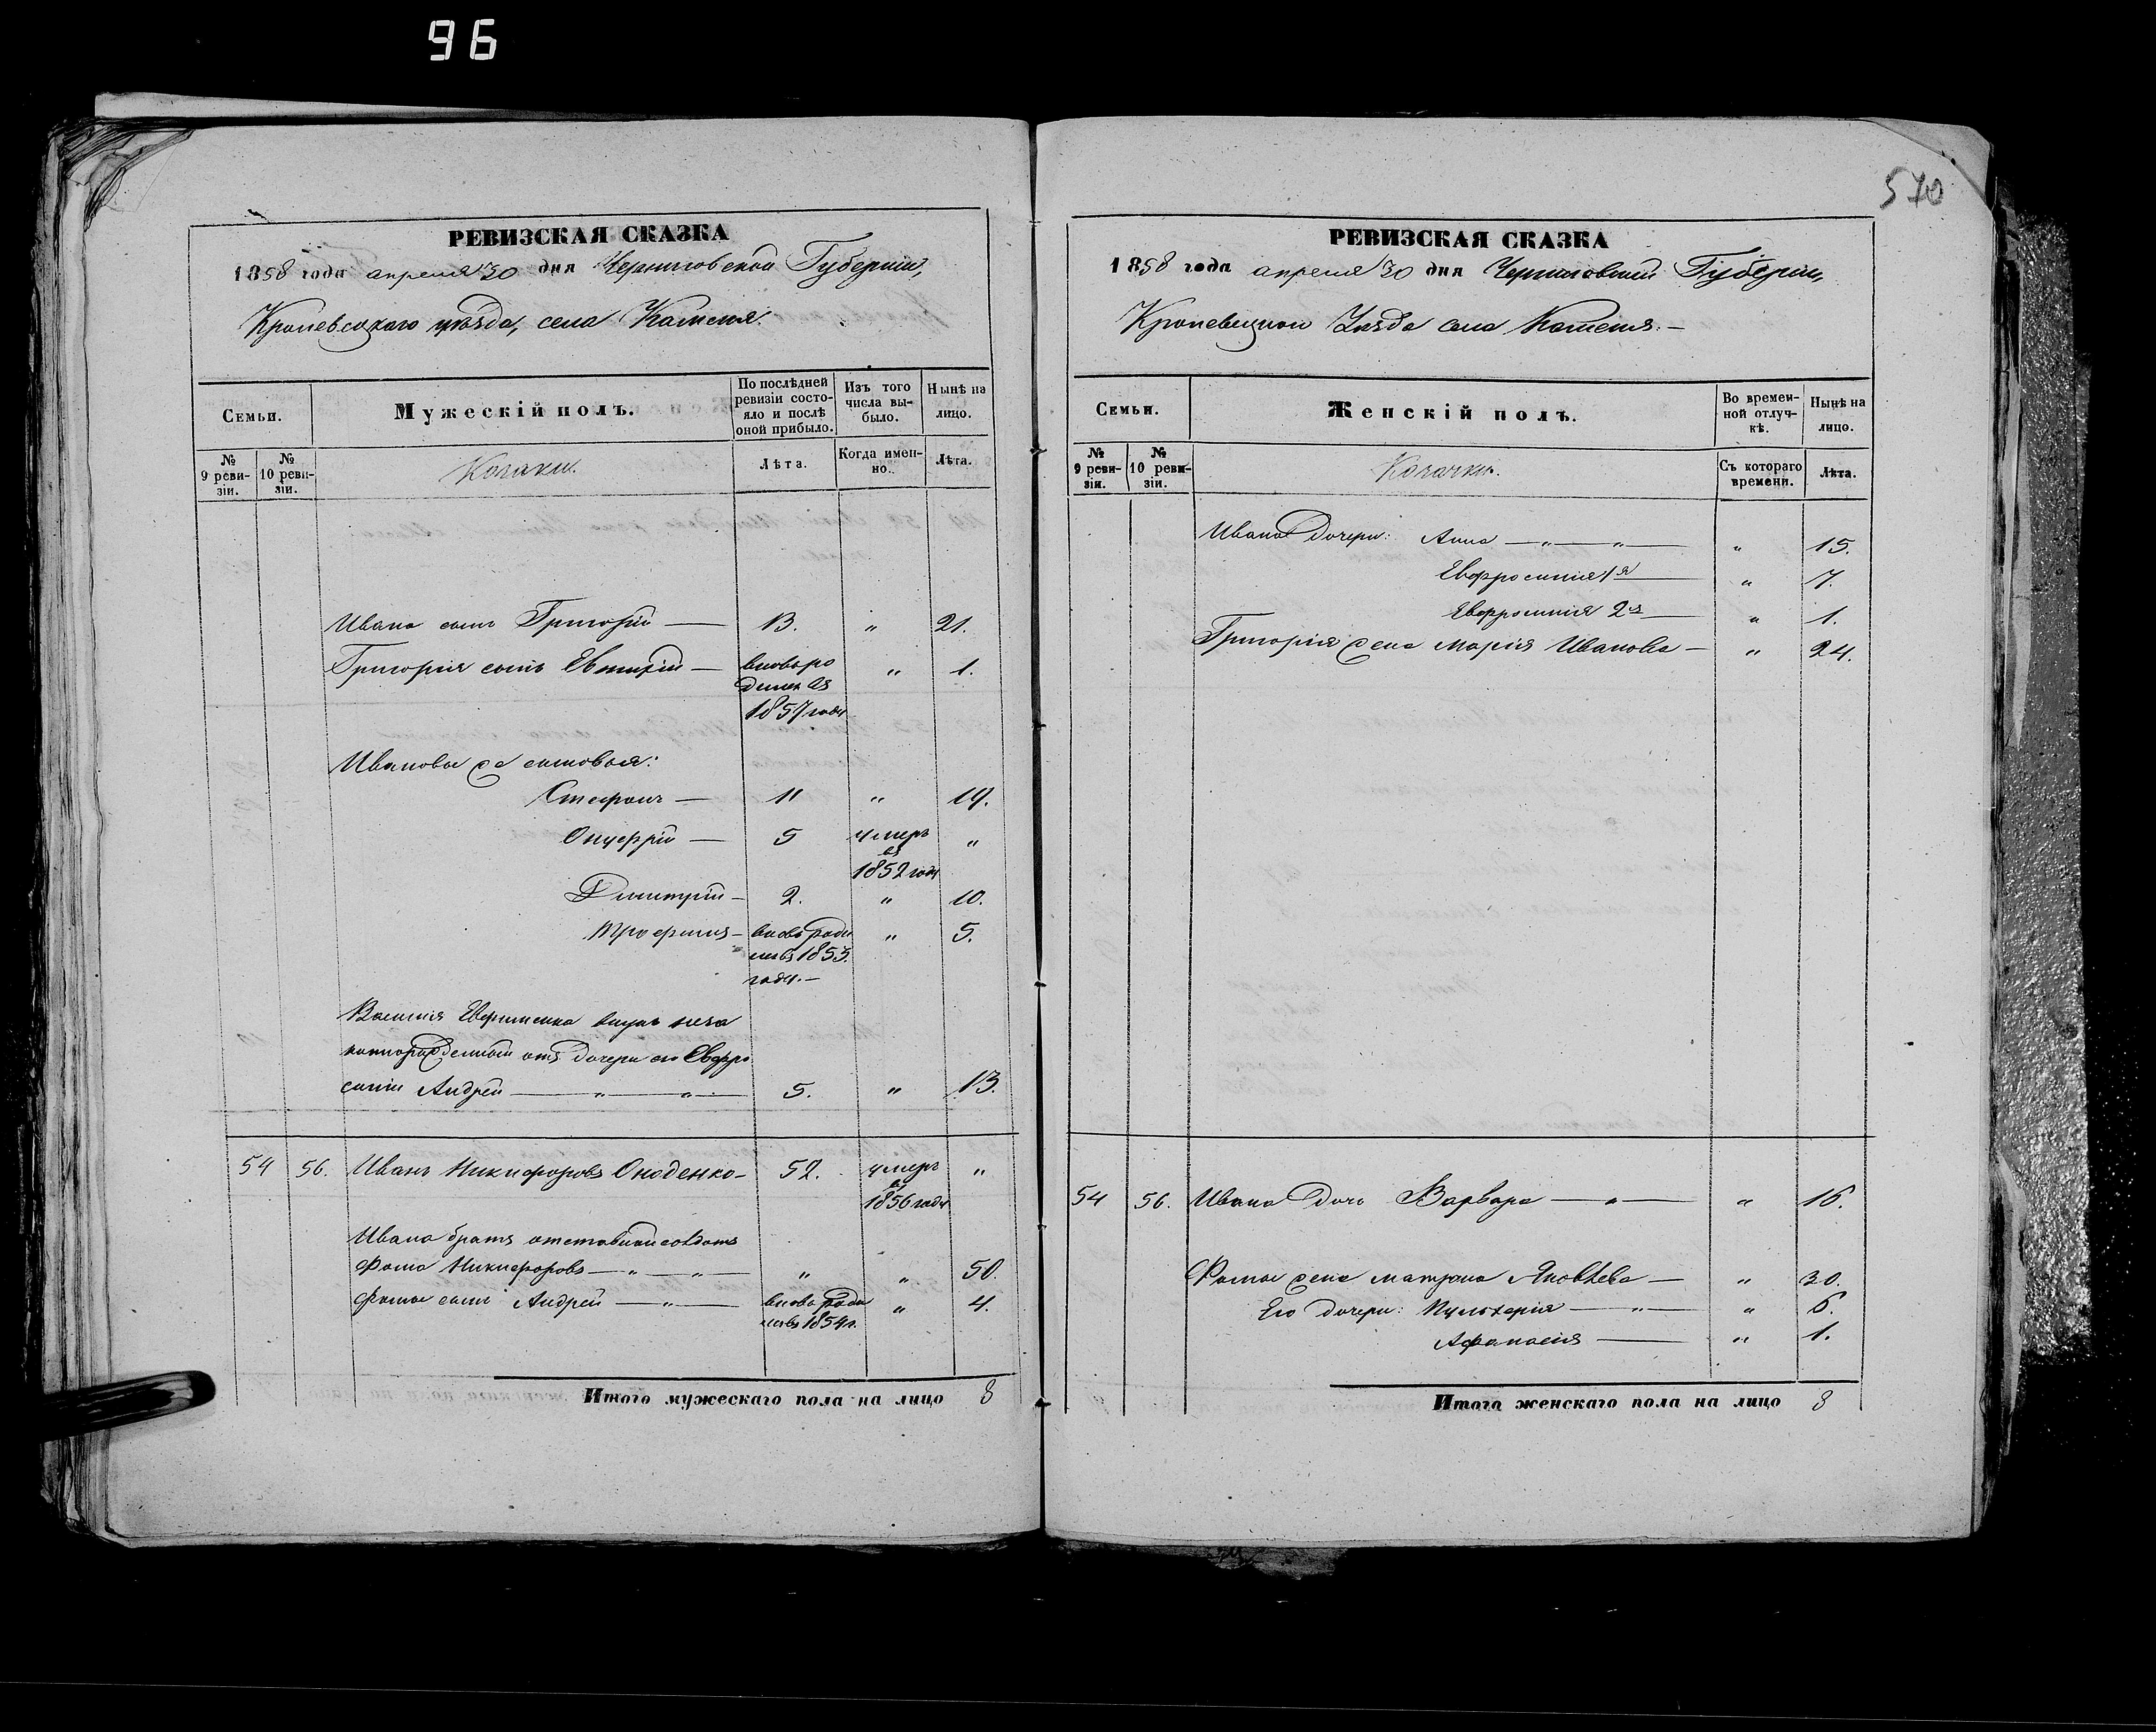 96
570
РЕВИЗСКАЯ СКАЗКА
1858 года апреля 30 дня Черниговской Губерніи,
Кролевецкаго уѣзда, села Каменя.
Семьи.
Мужескій полъ.
По послѣдней ревизіи состояло и послѣ оной прибыло.
Изъ того числа выбыло.
Нынѣ на лицо.
№ 9 ревизіи.
№ 10 ревизіи.
Козаки.
Лѣта.
Когда именно.
Лѣта.
Ивана сынъ Григорій — 13. " 21.
Григорія сынъ Евтихій — вновь родился въ 1857 году " 1.
Ивановы же сыновья:
Стефанъ — 11 " 19.
Онуфрій — 5 умеръ въ 1852 году "
Димитрій — 2. " 10.
Трофимъ — вновь родился въ 1853 году. — " 5.
Василія внукъ неза
коннорожденный отъ дочери его Евфро
синіи Андрей — " — " — 5. " 13.
54 56. Иванъ Никифоровъ — 52. умеръ въ 1856 году "
Ивана братъ отставной солдатъ
Фома Никифоровъ — " — " — " " 50.
Фомы сынъ Андрей — " — вновь родился въ 1854 г. " 4.
Итого мужескаго пола на лицо 8
РЕВИЗСКАЯ СКАЗКА
1858 года апреля 30 дня Черниговской Губерніи,
Кролевецкого Уѣзда села Каменя. —
Семьи.
Женскій полъ.
Во временной отлучкѣ.
Нынѣ на лицо.
№ 9 ревизіи.
№ 10 ревизіи.
Козачки.
Съ котораго времени.
Лѣта.
Ивана дочери: Анна — " — " — " 15.
Евфросинія 1я — " 7.
Евфросинія 2я — " 1.
Григорія жена Марія Иванова — " 24.
54 56. Ивана дочь Варвара — " — " 16.
Фомы жена Матрона Яковлева — " 30.
Его дочери: Пульхерія — " — " 6.
Афанасія — " 1.
Итого женскаго пола на лицо 8